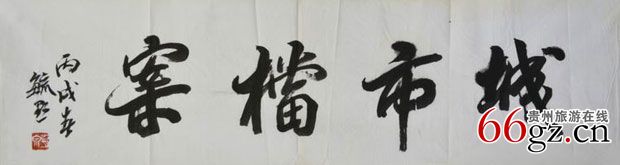 城市檔案
丙戌春
毓
贵州旅游在线
66gz.cn